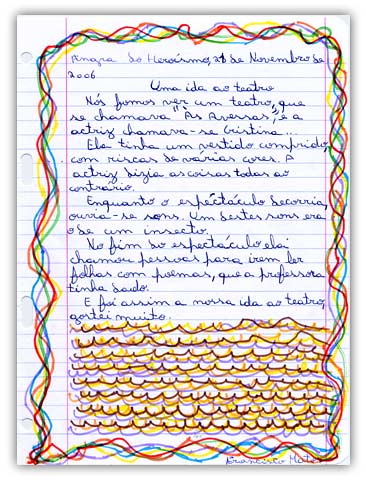 Angra do Heroísmo, 21 de Novembro de
2006
Uma ida ao teatro
Nós fomos ver um teatro, que
se chamava "As Avessas", e a
actriz chamava-se Cristina...
Ela tinha um vestido comprido,
com riscas de várias cores. A
actriz dizia as coisas todas ao
contrário.
Enquanto o espectáculo decorria,
ouvia-se sons. Um destes sons era
o de um insecto.
No fim do espectáculo ela
chamou pessoas para irem ler
folhas com poemas, que a professora
tinha dado.
E foi assim a nossa ida ao teatro,
gostei muito.
Francisco